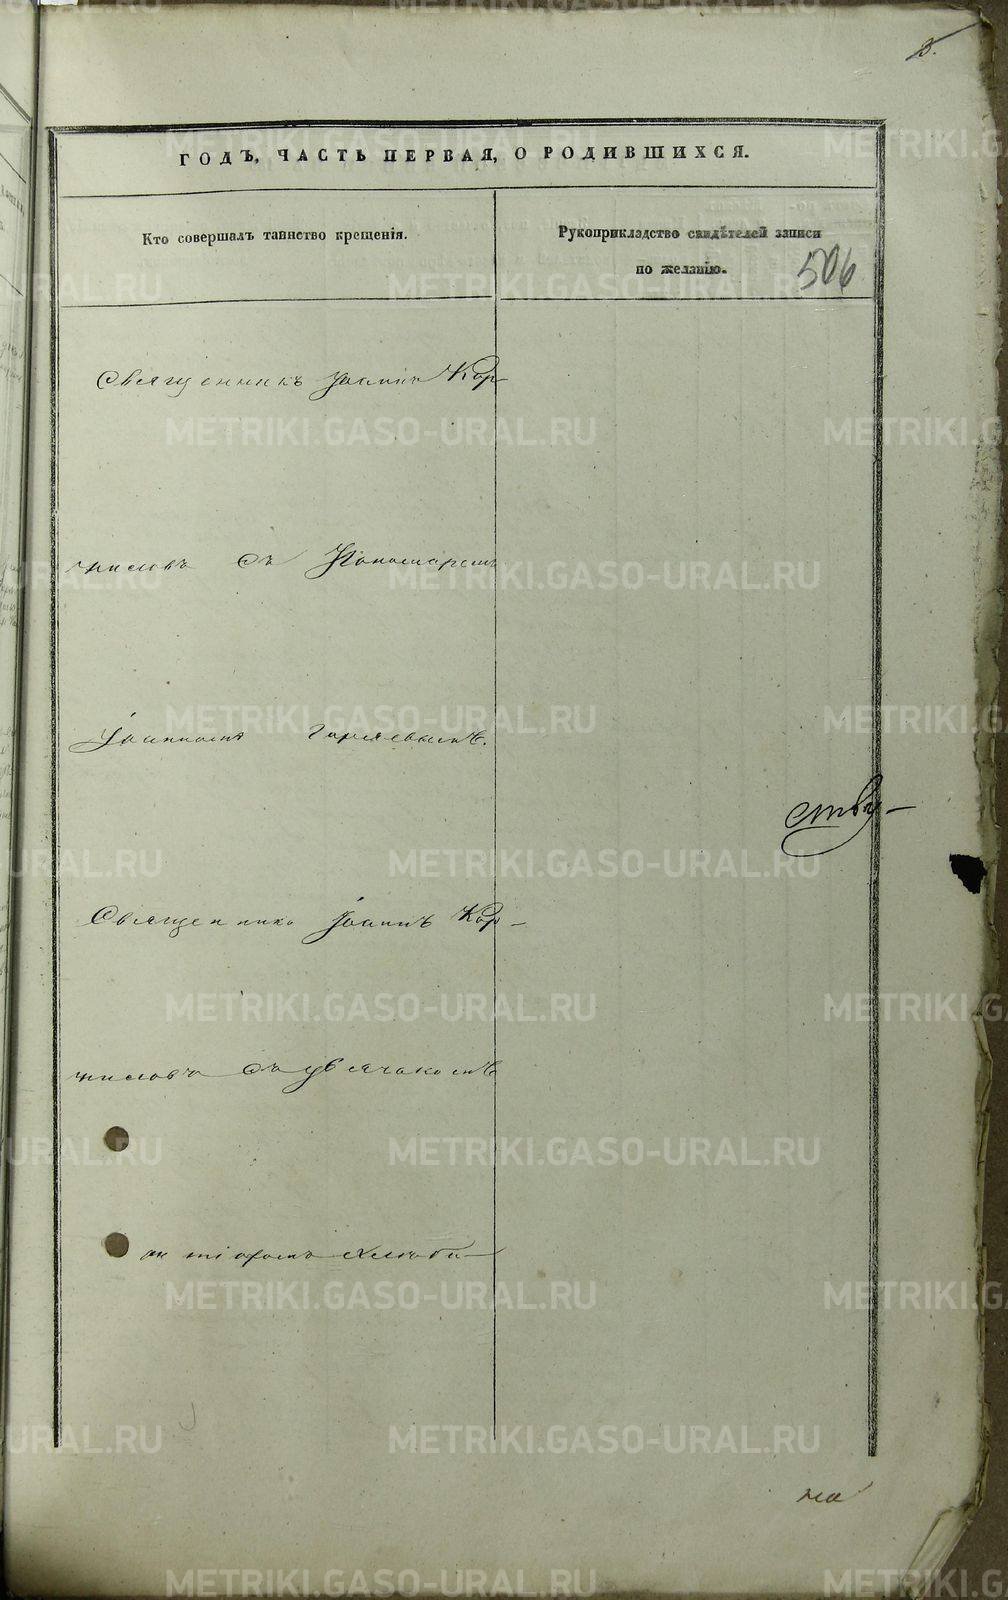 3.
ГОДЪ, ЧАСТЬ ПЕРВАЯ, О РОДИВШИХСЯ.
Кто совершалъ таинство крещенія.
Рукоприкладство свидѣтелей записи
по желанію.
506
Священникъ Іоаннъ Кор-
ниловъ съ Пономаремъ
Іоанномъ
ству-
Священникъ Іоаннъ Кор-
ниловъ съ
на
METRIKI.GASO-URAL.RU